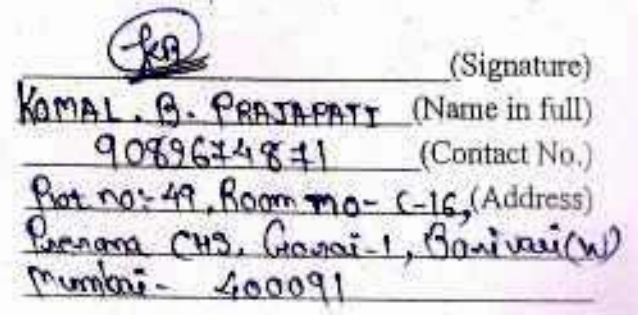 (Signature)
KOMAL. B. PRAJAPATI (Name in full)
9089674871 (Contact No.)
Plot no:-49, Room no- C-16, (Address)
Prerana CHS, Gorai-1, Borivali(W)
Mumbai- 400091